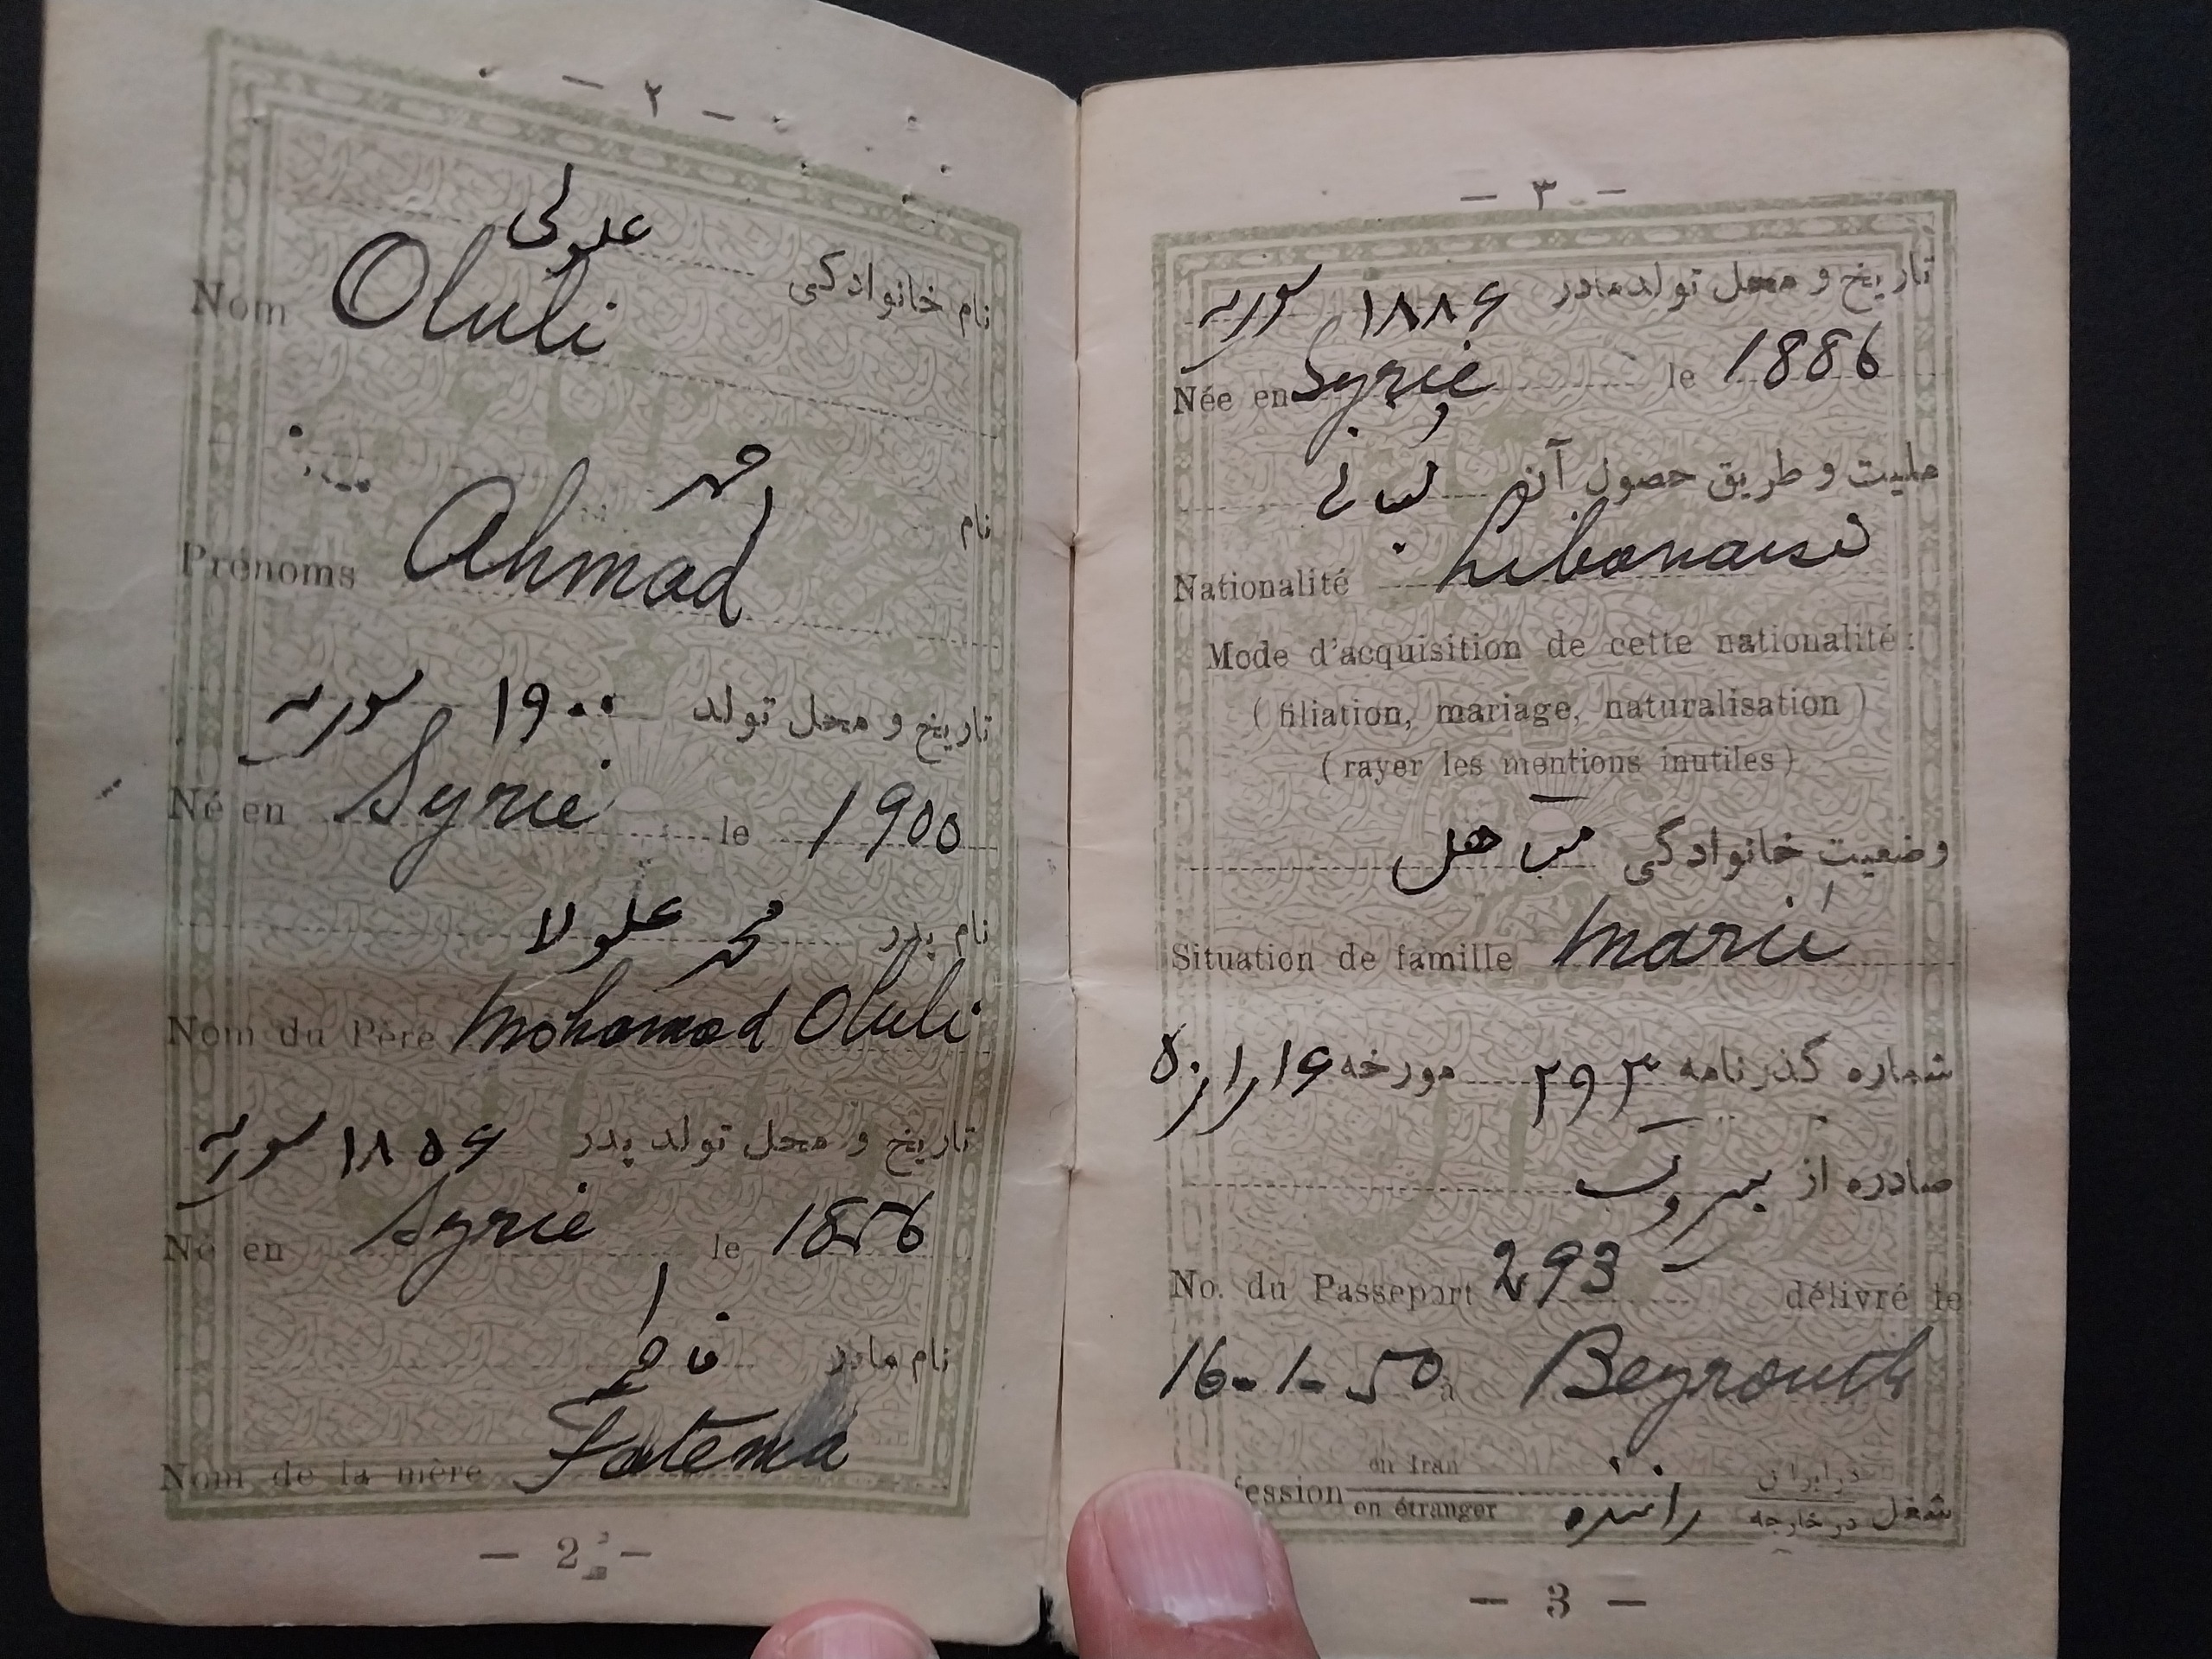 — ۲ —
علولی
Nom Oluli نام خانوادگی
احمد
Prénoms Ahmad نام
تاریخ و محل تولد ۱۹۰۰ سوریه
Né en Syrie le 1900
نام پدر محمد علولا
Nom du Père Mohamad Oluli
تاریخ و محل تولد پدر ۱۸۵۶ سوریه
Né en Syrie le 1856
نام مادر فاطمه
Nom de la mère Fatema
— 2 —
— ۳ —
تاریخ و محل تولد مادر ۱۸۸۶ سوریه
Née en Syrie le 1886
ملیت و طریق حصول آن لبنانی
Nationalité Libanaise
Mode d'acquisition de cette nationalité :
( filiation, mariage, naturalisation )
( rayer les mentions inutiles )
وضعیت خانوادگی متاهل
Situation de famille Marié
شماره گذرنامه ۲۹۳ مورخه ۱۶ر۱ر۵۰
صادره از بیروت
No. du Passeport 293 délivré le
16-1-50 à Beyrouth
en Iran در ایران
fession en étranger راننده شغل در خارجه
— 3 —